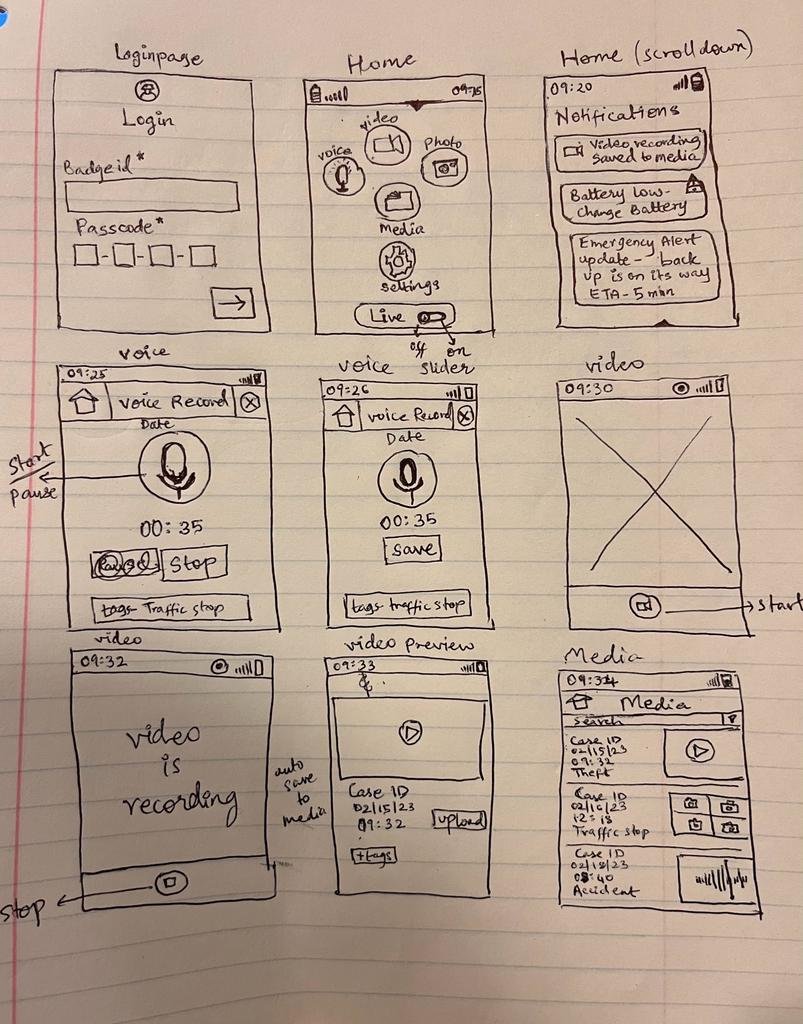 Loginpage
Login
Badge id*
Passcode*
Home
09:15
video
voice
Photo
Media
settings
Live
off
on
slider
Home (scrolldown)
09:20
Notifications
Video recording
saved to media
Battery low-
change Battery
Emergency Alert
update - back
up is on its way
ETA - 5 min
voice
09:25
voice Record
Date
start
pause
00:35
Stop
tags- Traffic stop
voice
09:26
voice Record
Date
00:35
save
tags- traffic stop
video
09:30
start
video
09:32
video
is
recording
stop
auto
save
to
media
video preview
09:33
Case ID
02/15/23
09:32
upload
+tags
Media
09:34
Media
search
Case ID
02/15/23
09:32
Theft
Case ID
02/16/23
12:18
Traffic stop
Case ID
02/18/23
08:40
Accident